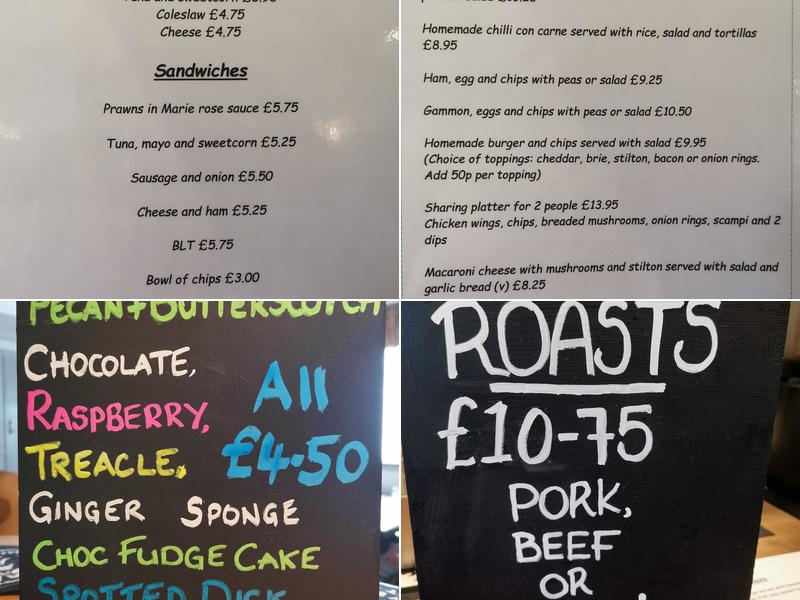 Tuna and sweetcorn £5.95
Coleslaw £4.75
Cheese £4.75
Sandwiches
Prawns in Marie rose sauce £5.75
Tuna, mayo and sweetcorn £5.25
Sausage and onion £5.50
Cheese and ham £5.25
BLT £5.75
Bowl of chips £3.00
or salad
Homemade chilli con carne served with rice, salad and tortillas
£8.95
Ham, egg and chips with peas or salad £9.25
Gammon, eggs and chips with peas or salad £10.50
Homemade burger and chips served with salad £9.95
(Choice of toppings: cheddar, brie, stilton, bacon or onion rings.
Add 50p per topping)
Sharing platter for 2 people £13.95
Chicken wings, chips, breaded mushrooms, onion rings, scampi and 2
dips
Macaroni cheese with mushrooms and stilton served with salad and
garlic bread (v) £8.25
PECAN + BUTTERSCOTCH
CHOCOLATE,
RASPBERRY,
TREACLE,
All
£4.50
GINGER SPONGE
CHOC FUDGE CAKE
SPOTTED DICK
ROASTS
£10-75
PORK,
BEEF
OR